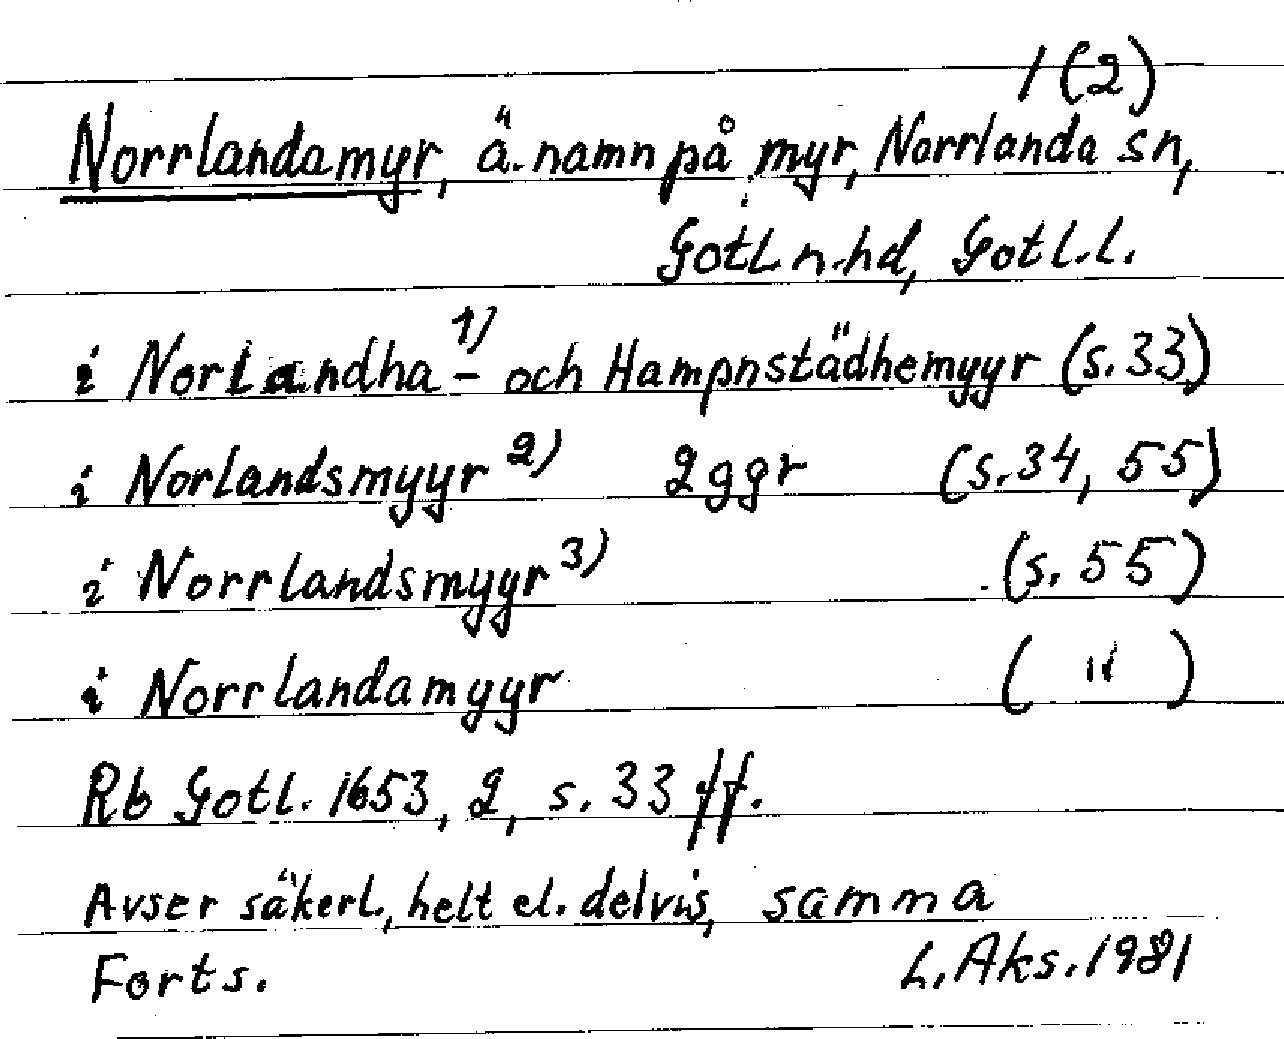 1(2)
Norrlandamyr, ä. namn på myr, Norrlanda sn,
Gotl. n. hd, Gotl. l.
i Norlandha-1) och Hampnstädhemyyr (s. 33)
i Norlandsmyyr 2) 2 ggr (s. 34, 55)
i Norrlandsmyyr 3) (s. 55)
i Norrlandamyyr ( " )
Rb Gotl. 1653, 2, s. 33 ff.
Avser säkerl., helt el. delvis, samma
Forts. L. Aks. 1981